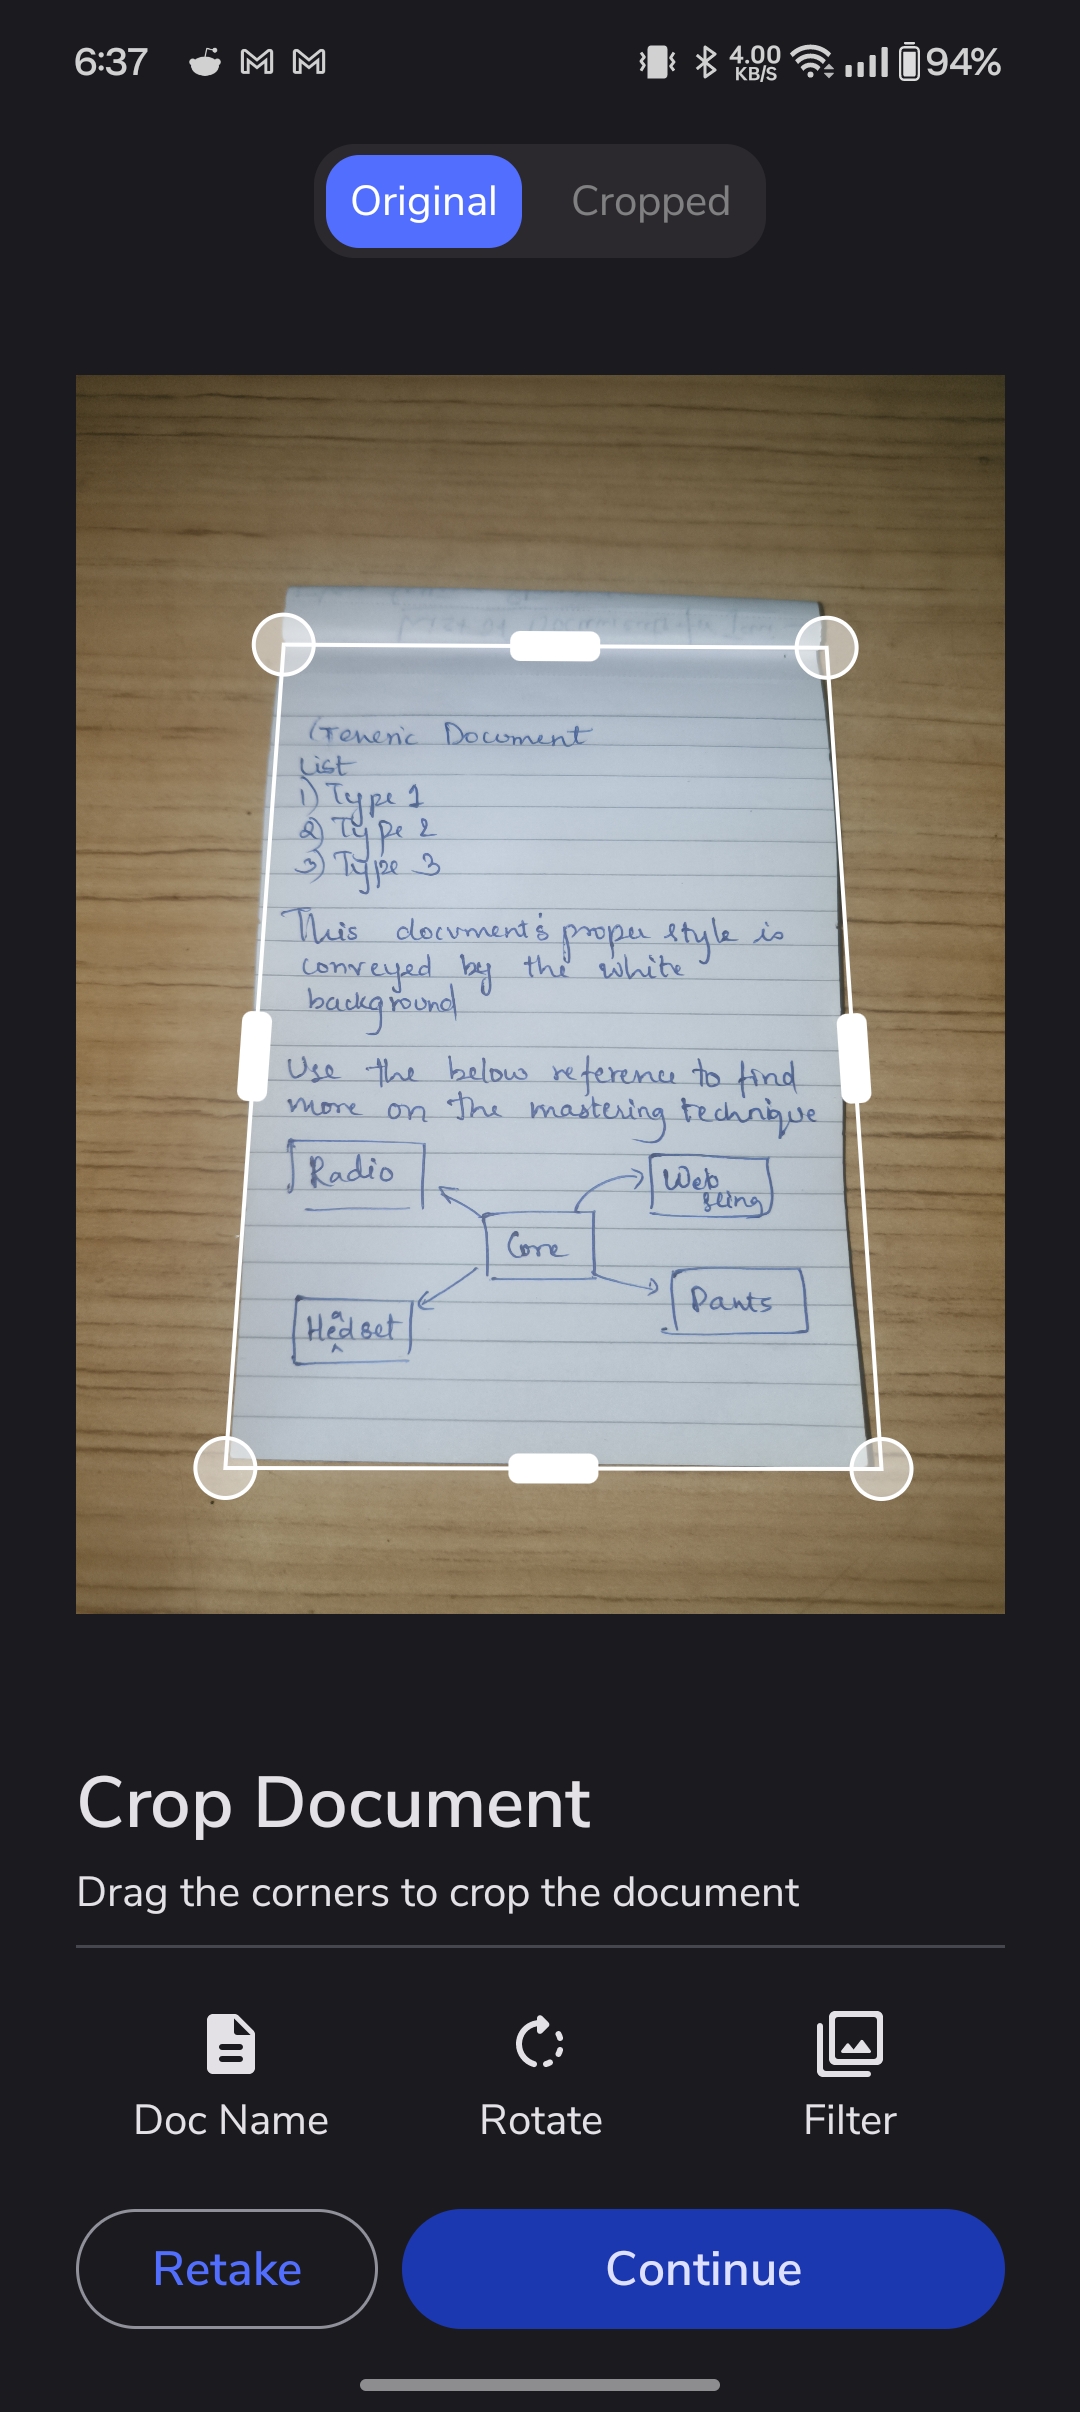 6:37
4.00 KB/S
94%
Original
Cropped
Generic Document
List
1) Type 1
2) Type 2
3) Type 3
This document's proper style is
conveyed by the white
background
Use the below reference to find
more on the mastering technique
Radio
Web
sling
Core
Pants
Headset
Crop Document
Drag the corners to crop the document
Doc Name
Rotate
Filter
Retake
Continue